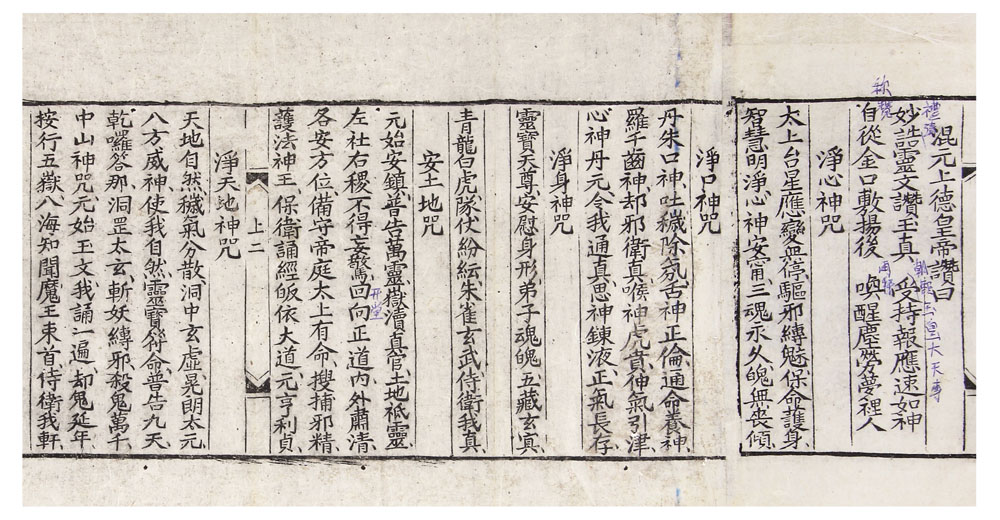 混元上德皇帝讚曰
妙誥靈文讚玉真 受持報應速如神
自從金口敷揚後 喚醒塵勞夢裡人
淨心神咒
太上台星應變無停驅邪縛魅保命護身
智慧明淨心神安甯三魂永久魄無喪傾
淨口神咒
丹朱口神吐穢除氛舌神正倫通命養神
羅千齒神却邪衛真喉神虎賁伸氣引津
心神丹元令我通真思神鍊液正氣長存
淨身神咒
靈寶天尊安慰身形弟子魂魄五藏玄冥
青龍白虎隊仗紛紜朱雀玄武侍衛我真
安土地咒
元始安鎮普告萬靈嶽瀆真官土地祇靈
左社右稷不得妄驚回向正道內外肅清
各安方位備守帝庭太上有命搜捕邪精
護法神王保衛誦經皈依大道元亨利貞
上二
淨天地神咒
天地自然穢氣分散洞中玄虛晃朗太元
八方威神使我自然靈寶符命普告九天
乾囉答那洞罡太玄斬妖縛邪殺鬼萬千
中山神咒元始玉文我誦一遍却鬼延年
按行五嶽八海知聞魔王束首侍衛我軒
稱讚
玉皇大天尊
開堂